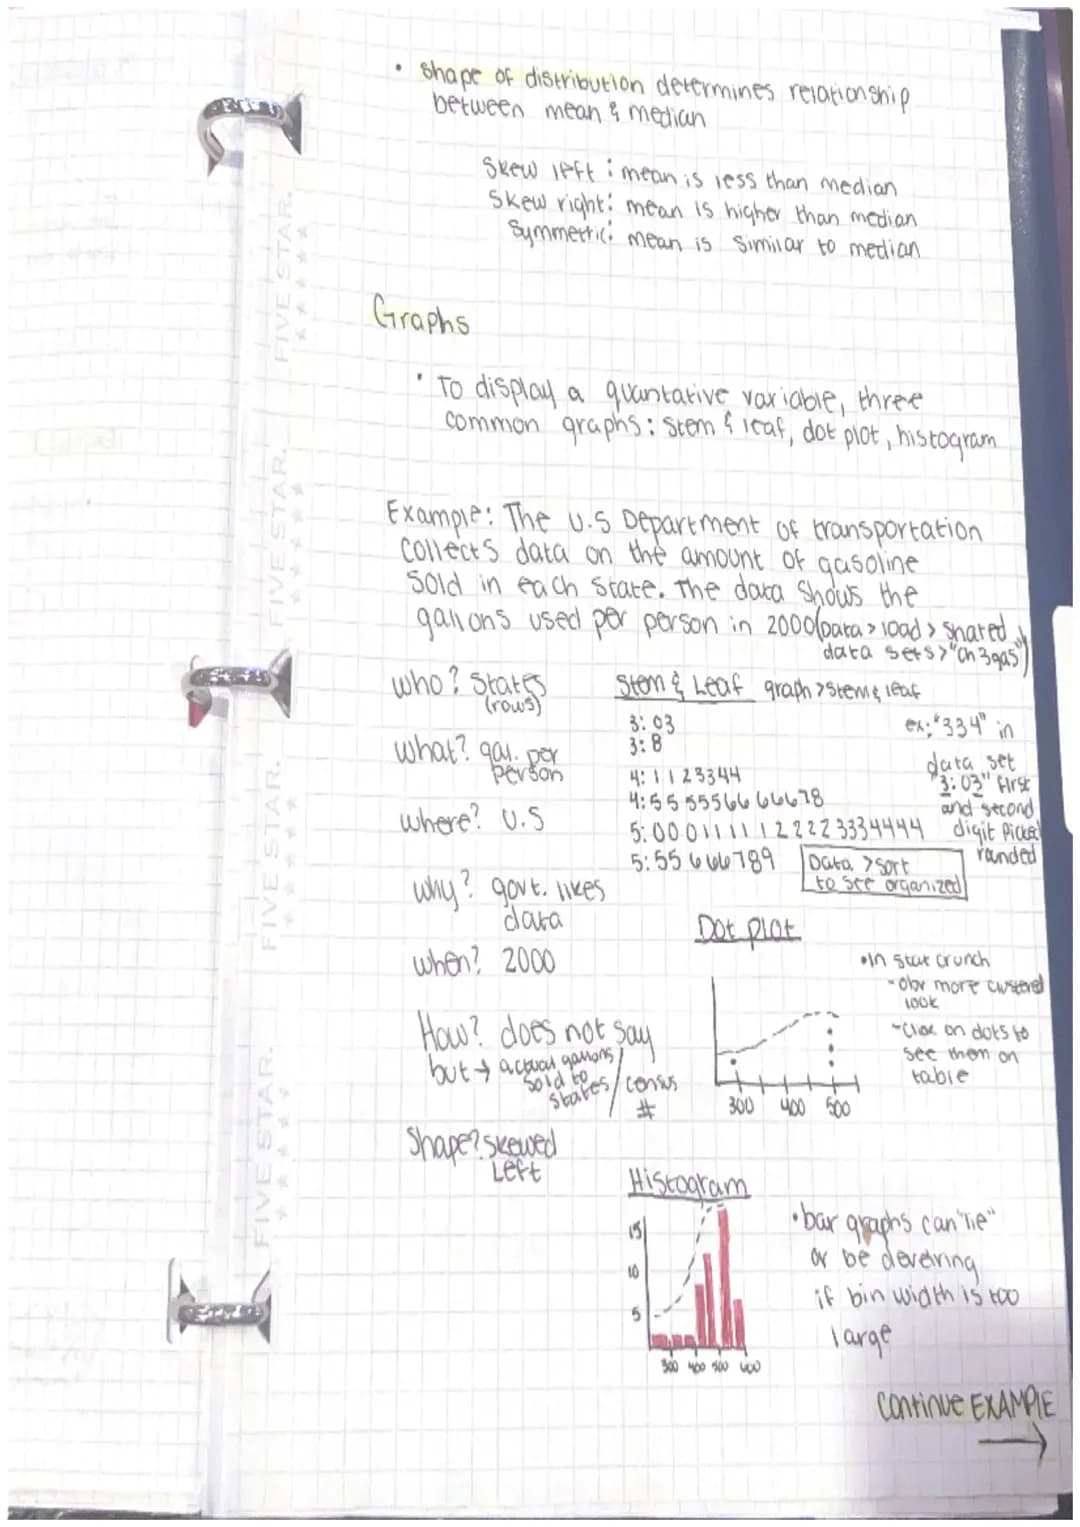 • shape of distribution determines relationship
between mean & median
Skew left : mean is less than median
Skew right: mean is higher than median
Symmetric: mean is similar to median
Graphs
• To display a quantative variable, three
common graphs: stem & leaf, dot plot, histogram
Example: The U.S Department of transportation
collects data on the amount of gasoline
sold in each state. The data shows the
gallons used per person in 2000 (Data > load > shared
data sets > "Ch 3 gas")
who? States
(rows)
what? gal. per
person
where? U.S
why? govt. likes
data
when? 2000
How? does not say
but → actual gallons
sold to
states / census
#
Shape? skewed
Left
Stem & Leaf graph > stem & leaf
3: 03
3: 8
4: 1 1 2 3 3 4 4
4: 55 5555666666678
5: 00011111122223334444
5: 55666789
ex: "334" in
data set
"3: 03" first
and second
digit picked
rounded
Data > Sort
to see organized
Dot plot
300 400 500
• In stat crunch
- more clustered
look
- Click on dots to
see them on
table
Histogram
15
10
5
300 400 500 600
• bar graphs can "lie"
or be
if bin width is too
large
continue EXAMPLE
→
FIVE STAR.
FIVE STAR.
FIVE STAR.
FIVE STAR.